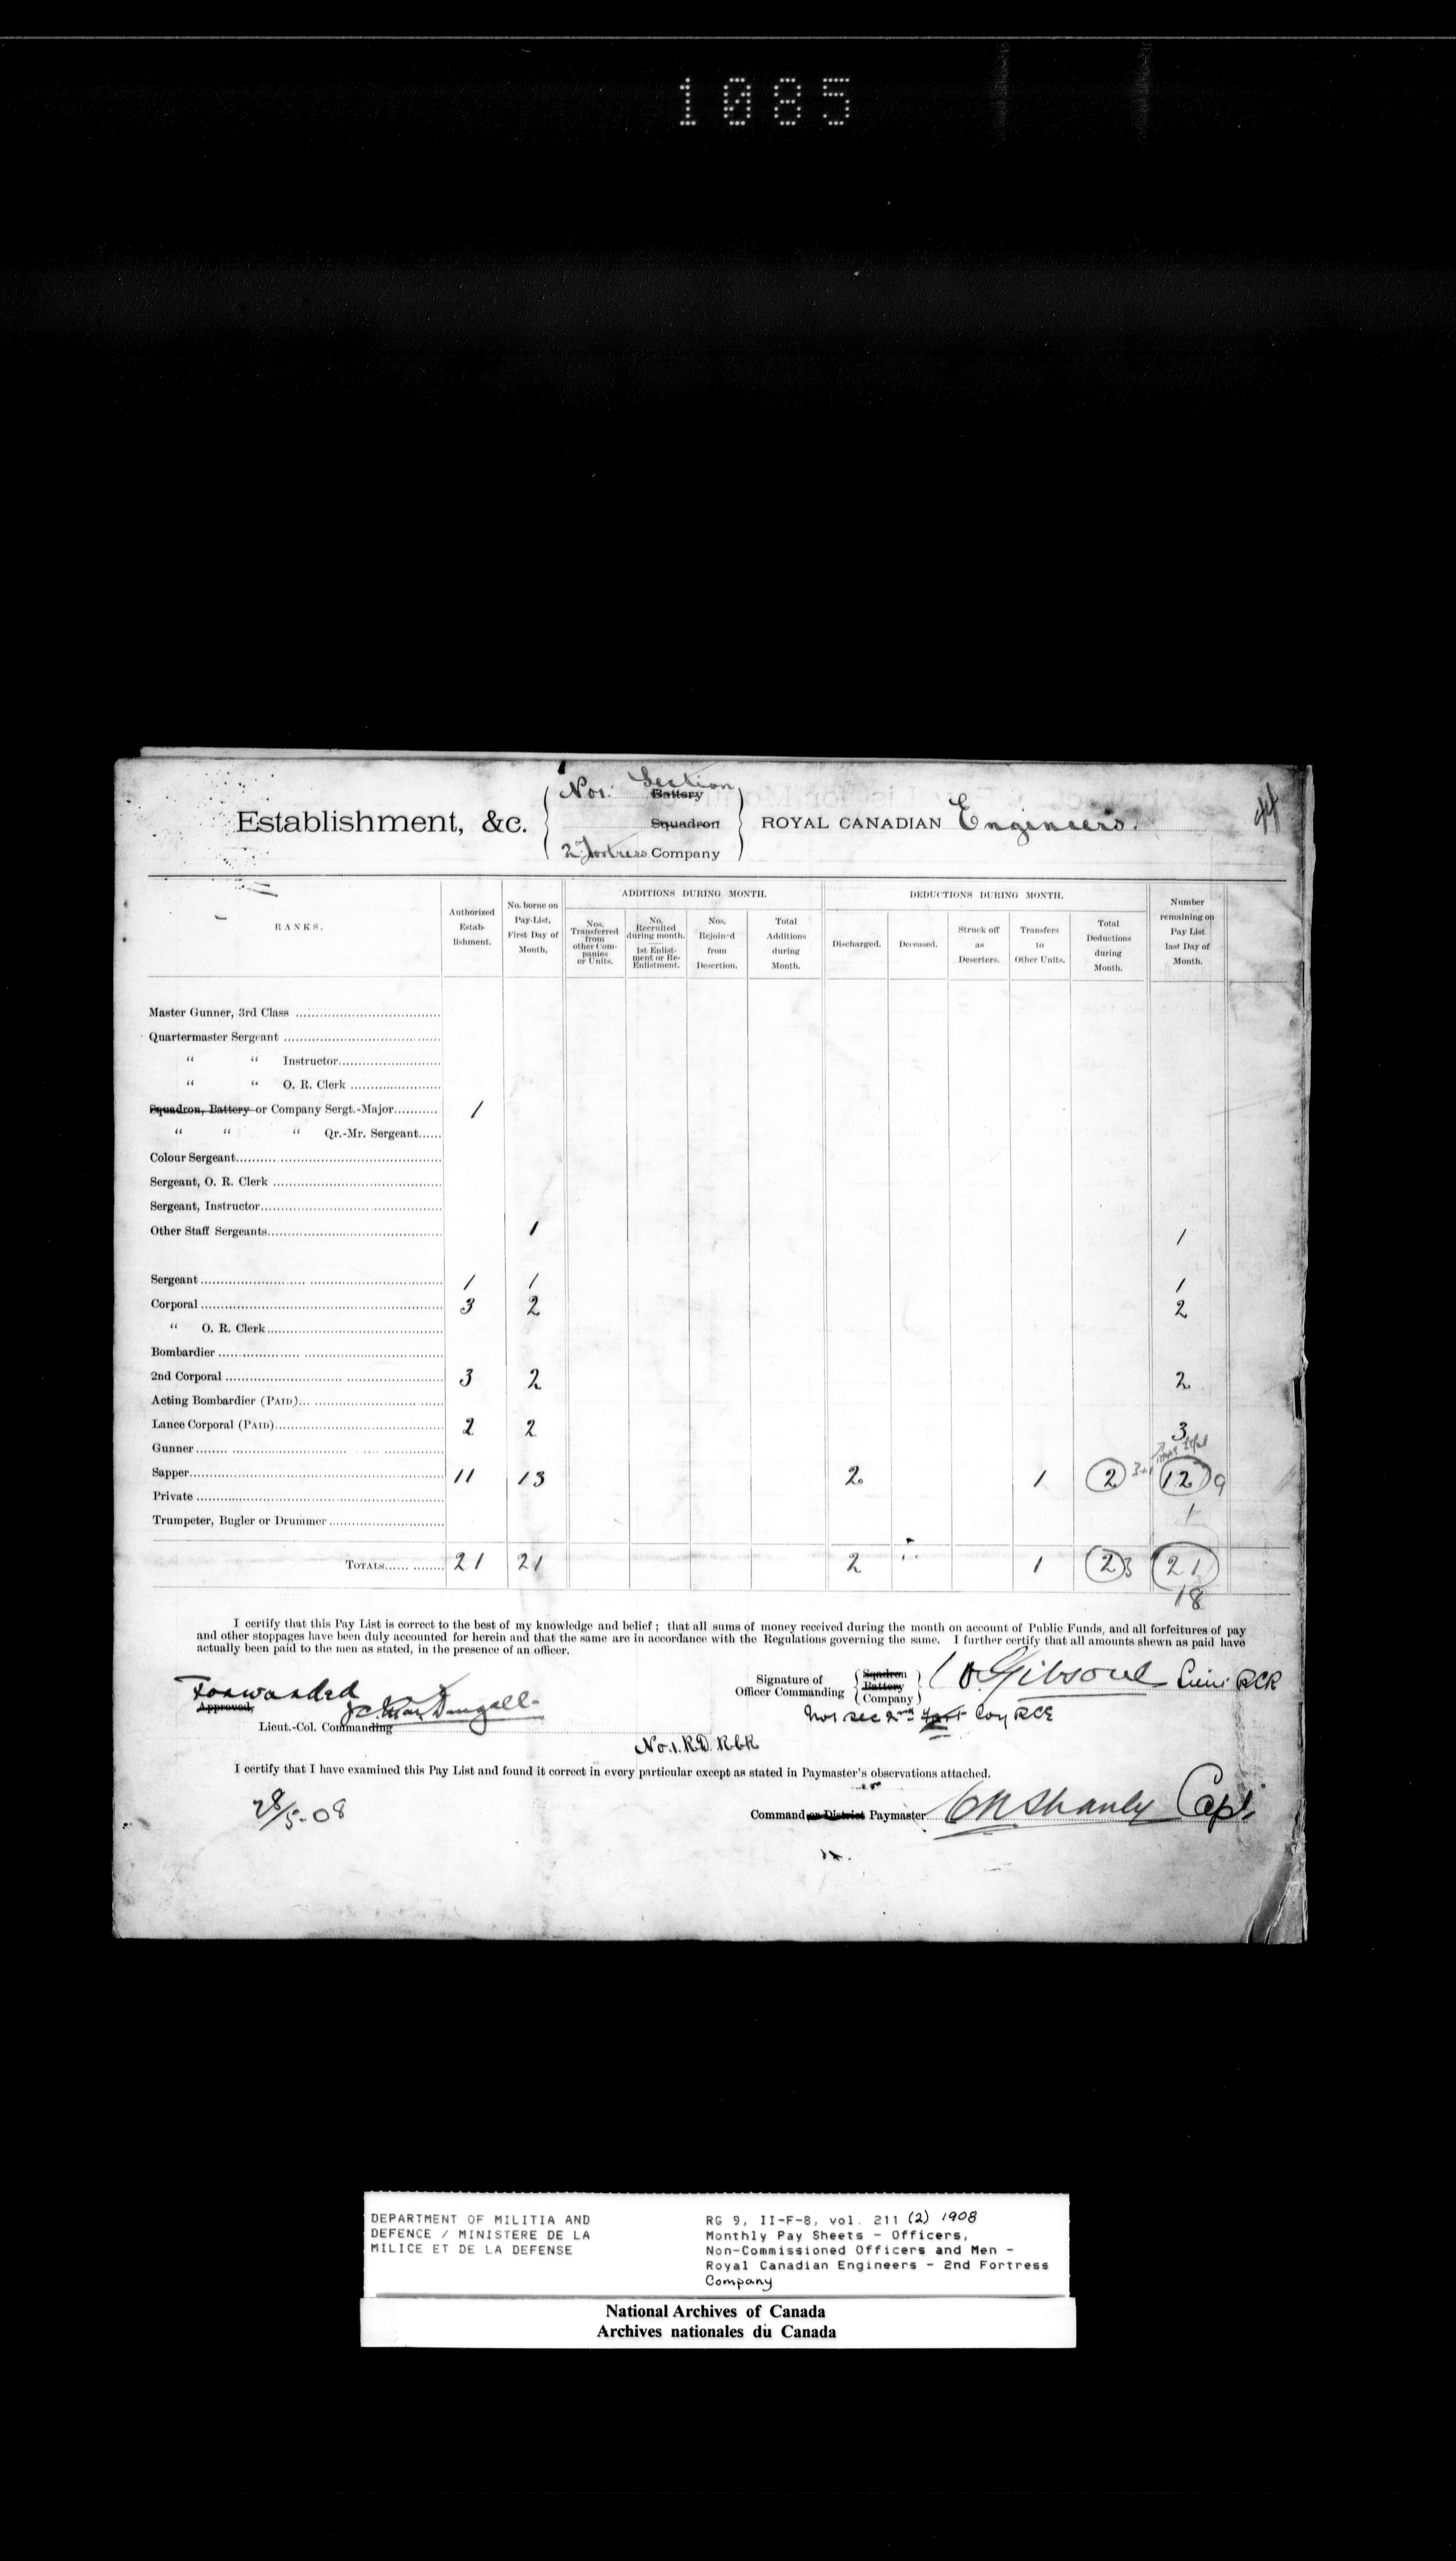 1085
No 1. Section
Battery
Establishment, &c. Squadron ROYAL CANADIAN Engineers.
2nd Fortress Company
RANKS.
Authorized Establishment.
No. borne on Pay-List, First Day of Month.
ADDITIONS DURING MONTH.
Nos. Transferred from other Companies or Units.
No. Recruited during month. 1st Enlistment or Re-Enlistment.
Nos. Rejoined from Desertion.
Total Additions during Month.
DEDUCTIONS DURING MONTH.
Discharged.
Deceased.
Struck off as Deserters.
Transfers to Other Units.
Total Deductions during Month.
Number remaining on Pay List last Day of Month.
Master Gunner, 3rd Class
Quartermaster Sergeant
“ “ Instructor
“ “ O. R. Clerk
Squadron, Battery or Company Sergt.-Major 1
“ “ “ Qr.-Mr. Sergeant
Colour Sergeant
Sergeant, O. R. Clerk
Sergeant, Instructor
Other Staff Sergeants 1 1
Sergeant 1 1 1
Corporal 3 2 2
“ O. R. Clerk
Bombardier
2nd Corporal 3 2 2
Acting Bombardier (PAID)
Lance Corporal (PAID) 2 2 3
Gunner
Sapper 11 13 2 1 2 12 9
Private
Trumpeter, Bugler or Drummer
TOTALS 21 21 2 1 2 3 21
18
I certify that this Pay List is correct to the best of my knowledge and belief; that all sums of money received during the month on account of Public Funds, and all forfeitures of pay
and other stoppages have been duly accounted for herein and that the same are in accordance with the Regulations governing the same. I further certify that all amounts shewn as paid have
actually been paid to the men as stated, in the presence of an officer.
Forwarded
Approved,
J.C. MacDougall
Lieut.-Col. Commanding
No. 1. R.D. RCR
Signature of Officer Commanding
Squadron
Battery
Company
Gibsone Lieut RCR
No 1 sec 2nd Fort Coy RCE
I certify that I have examined this Pay List and found it correct in every particular except as stated in Paymaster's observations attached.
28/5-08
Command or District Paymaster CN Shanly Capt.
DEPARTMENT OF MILITIA AND
DEFENCE / MINISTERE DE LA
MILICE ET DE LA DEFENSE
RG 9, II-F-8, vol. 211 (2) 1908
Monthly Pay Sheets - Officers,
Non-Commissioned Officers and Men -
Royal Canadian Engineers - 2nd Fortress
Company
National Archives of Canada
Archives nationales du Canada